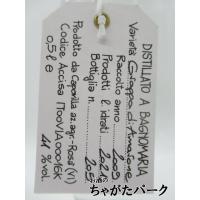 DISTILLATO A BAGNOMARIA
Varietà Grappa di Amarone
Raccolto anno 2009
Prodotti l. idrati 2021
Bottiglia n. 205
Prodotto da Capovilla az. agr.-Rosà (VI)
Codice Accisa IT00VIA00016K
0,5 l e 41 % vol.
お酒の
ちゃがたパーク